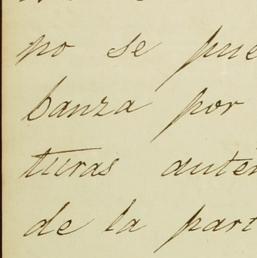 no se pue
banza por
turas autén
de la part